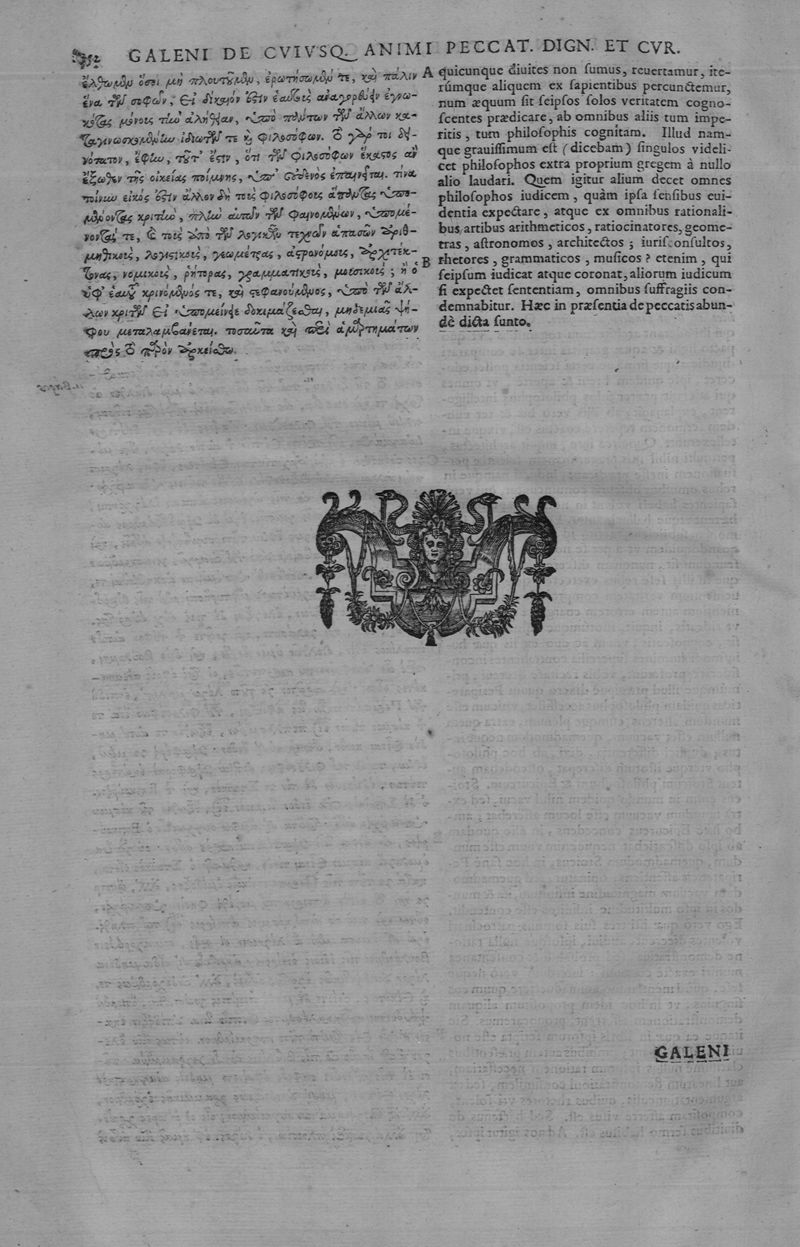 352 GALENI DE CVIVSQ. ANIMI PECCAT. DIGN. ET CVR.
ἔλθωμεν ὅσοι μὴ πλουτοῦμεν, ἐρωτήσωμέν τε, καὶ πάλιν
ἕνα τῶν σοφῶν, εἰ δίκαιόν ἐστιν ἑαυτοὺς ἀναγορεύειν ἐγνω-
κότας μόνους τὴν ἀλήθειαν, ὑπὸ πάντων τῶν ἄλλων κα-
ταγινωσκομένων ἰδιωτῶν τε καὶ φιλοσόφων. τὸ γάρ τοι δει-
νότατον, ἔφην, τοῦτ' ἔστιν, ὅτι τῶν φιλοσόφων ἕκαστος ἂν
ἔξωθεν τῆς οἰκείας ποίμνης, ὑπ' οὐδενὸς ἐπαινεῖται. τίνα
τοίνυν εἰκός ἐστιν ἄλλον δὴ τοὺς φιλοσόφους ἅπαντας ὑπο-
μένοντας κριτὴν, πλὴν αὐτῶν τῶν φαινομένων, ὑπομέ-
νοντας τε, καὶ τοὺς ἀπὸ τῶν λογικῶν τεχνῶν ἁπασῶν ἀριθ-
μητικοὺς, λογιστικοὺς, γεωμέτρας, ἀστρονόμους, ἀρχιτέκ-
τονας, νομικοὺς, ῥήτορας, γραμματικοὺς, μουσικούς; ἢ ὁ
ὑφ' ἑαυτοῦ κρινόμενός τε, καὶ στεφανούμενος, ὑπὸ τῶν ἄλ-
λων κριτῶν εἰ ὑπομείνειε δοκιμάζεσθαι, μηδεμιᾶς ψή-
φου μεταλαμβάνεται. τοσαῦτα καὶ περὶ ἁμαρτημάτων
πρὸς τὸ παρὸν ἀρκείσθω.
A quicunque diuites non sumus, reuertamur, ite-
rúmque aliquem ex sapientibus percunctemur,
num æquum sit seipsos solos veritatem cogno-
scentes prædicare, ab omnibus aliis tum impe-
ritis, tum philosophis cognitam. Illud nam-
que grauissimum est (dicebam) singulos videli-
cet philosophos extra proprium gregem à nullo
alio laudari. Quem igitur alium decet omnes
philosophos iudicem, quàm ipsa sensibus eui-
dentia expectare, atque ex omnibus rationali-
bus artibus arithmeticos, ratiocinatores, geome-
tras, astronomos, architectos; iurisconsultos,
B rhetores, grammaticos, musicos? etenim, qui
seipsum iudicat atque coronat, aliorum iudicum
si expectet sententiam, omnibus suffragiis con-
demnabitur. Hæc in præsentia de peccatis abun-
dè dicta sunto.
GALENI